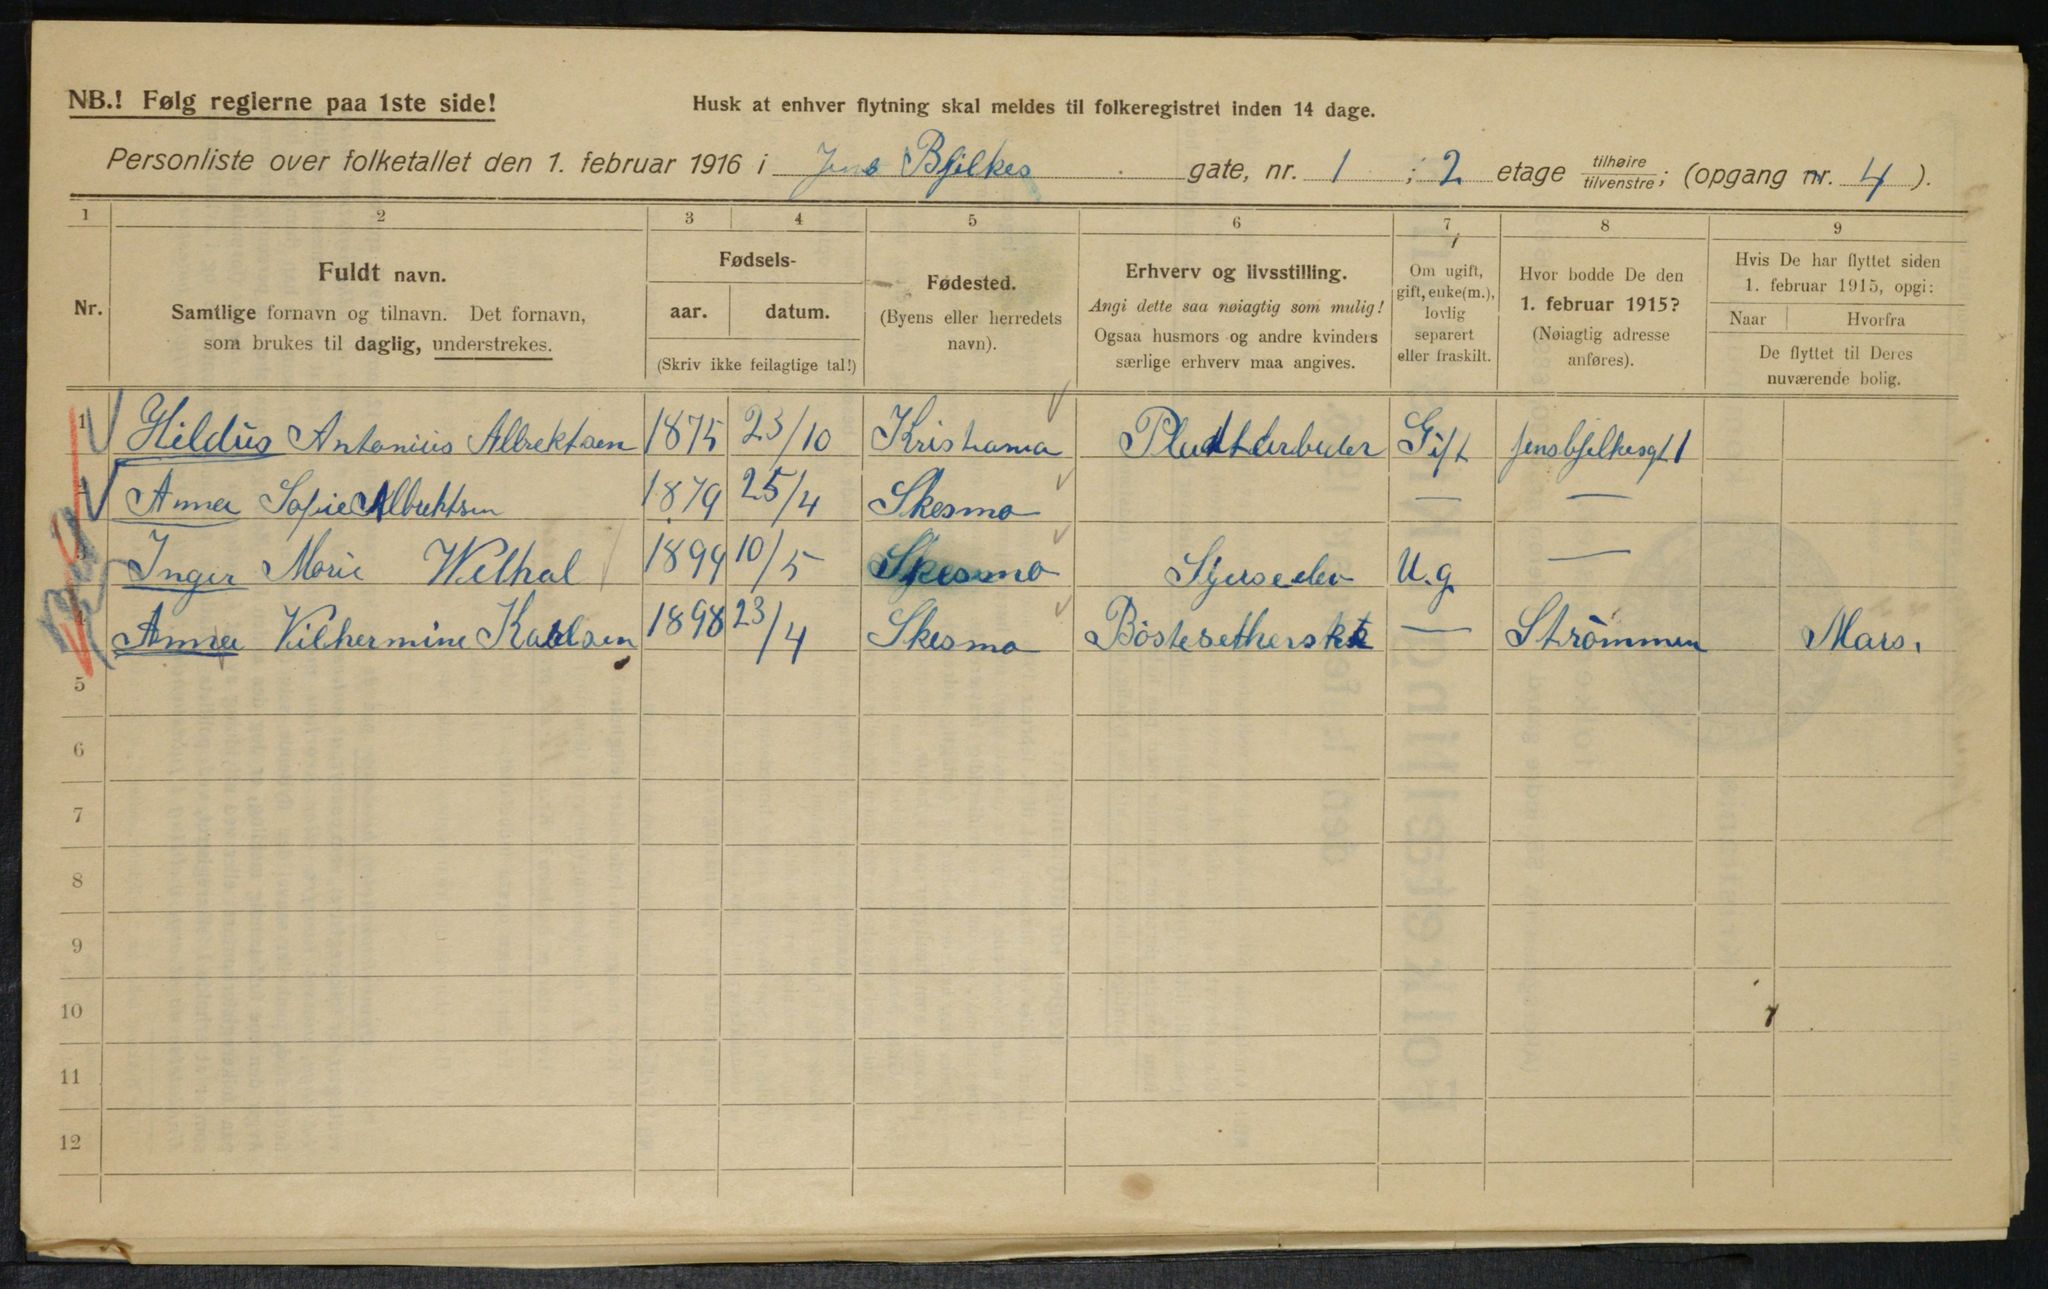 NB.! Følg reglerne paa 1ste side! Husk at enhver flytning skal meldes til folkeregistret inden 14 dage.
Personliste over folketallet den 1. februar 1916 i Jens Bjelkes gate, nr. 1 ; 2 etage tilhøire/tilvenstre; (opgang nr. 4 ).
1 2 3 4 5 6 7 8 9
Nr.
Fuldt navn.
Samtlige fornavn og tilnavn. Det fornavn,
som brukes til daglig, understrekes.
Fødsels-
aar. datum.
(Skriv ikke feilagtige tal!)
Fødested.
(Byens eller herredets
navn).
Erhverv og livsstilling.
Angi dette saa nøiagtig som mulig!
Ogsaa husmors og andre kvinders
særlige erhverv maa angives.
Om ugift,
gift, enke(m.),
lovlig
separert
eller fraskilt.
Hvor bodde De den
1. februar 1915?
(Nøiagtig adresse
anføres).
Hvis De har flyttet siden
1. februar 1915, opgi:
Naar Hvorfra
De flyttet til Deres
nuværende bolig.
1 Hildus Antonius Albrektsen 1875 23/10 Kristiania Gift Jensbjelkesgt 1
2 Anna Sofie Albrektsen 1879 25/4 Skesmo — —
3 Inger Marie Welhal 1899 10/5 Skesmo U.g —
4 Anna Vilhermine Karlsen 1898 23/4 Skesmo — Strömmen Mars.
5
6
7
8
9
10
11
12